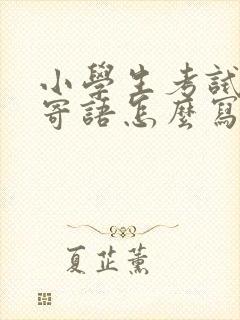 小學生考試
寄語怎麼寫
夏芷薰